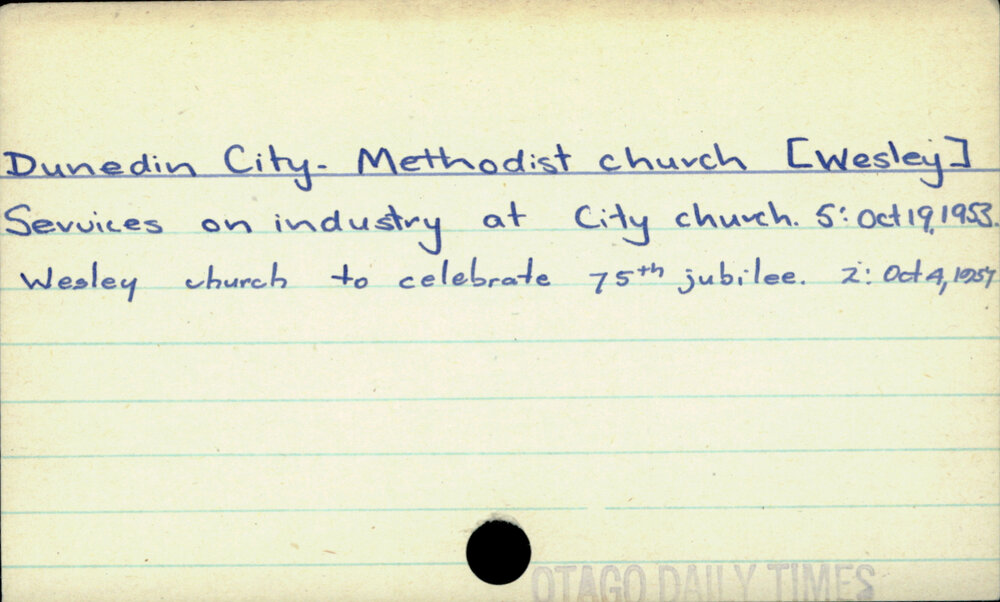 Dunedin City - Methodist church [Wesley]
Services on industry at City church. 5: Oct 19, 1953.
Wesley church to celebrate 75th jubilee. 2: Oct 4, 1957
OTAGO DAILY TIMES